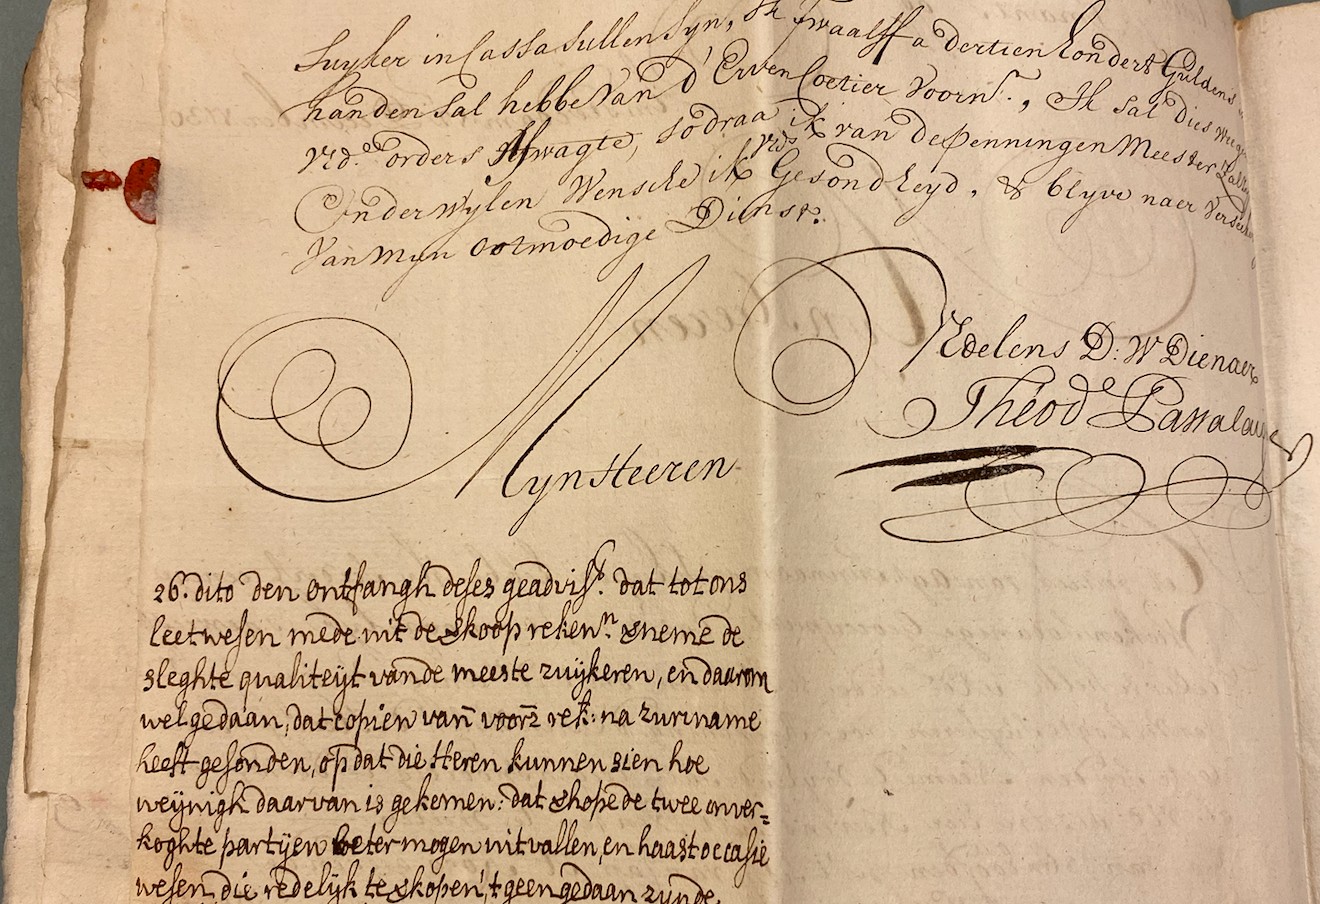 Suyker in Cassa sullen syn, Ik Twaalff a dertien hondert Guldens
handen sal hebbe van d' Erven Coetier Voorn., Ik sal dies weegen
UEd.e orders Afwagte, sodraa ik van de Penningen Meester
Onderwylen Wensche ik UEds Gesondheyd, & blyve naer
Van myn ootmoedige Dienst.
UEdelens D: W Dienaer
Théod Passalaig
Myn Heeren
26. dito den ontfangh deses geadvist. dat tot ons
leetwesen mede uit de verkoop reken.n verneme de
sleghte qualiteyt van de meeste zuijkeren, en daarom
wel gedaan, dat copien van voorz rek: na zuriname
heeft gesonden, op dat die Heren kunnen sien hoe
weijnigh daar van is gekomen: dat verhope de twee onver=
koghte partijen beter mogen uitvallen, en haast occasie
wesen die redelijk te verkopen, 't geen gedaan zijnde,